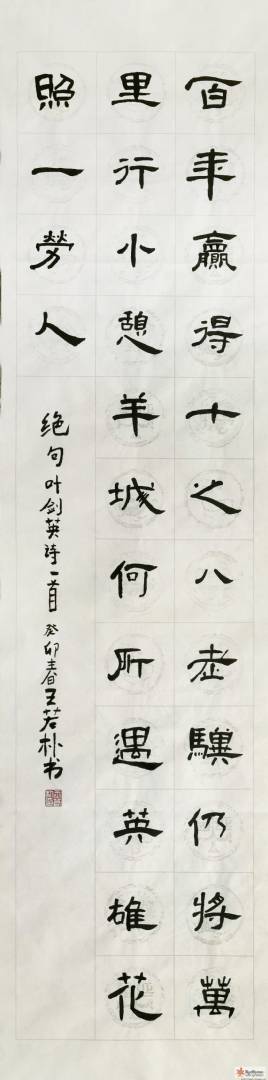 百年贏得十之八老驥仍將萬
里行小憩羊城何所遇英雄花
照一勞人
绝句叶剑英诗一首癸卯春王若朴书